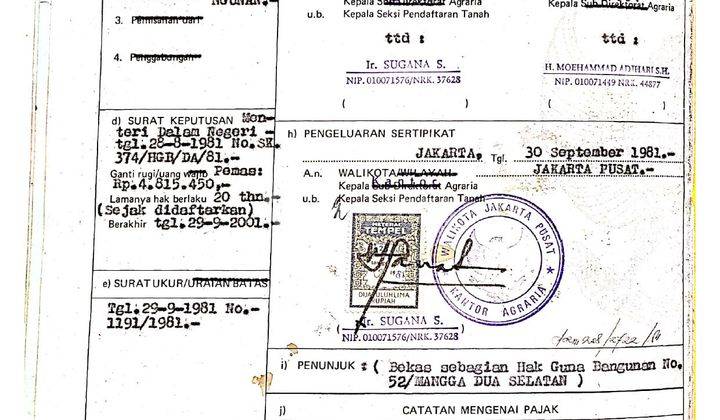 NGUNAN.-
3. Pemisahan dari
4. Penggabungan
d) SURAT KEPUTUSAN Men-
teri Dalam Negeri -
tgl.28-8-1981 No.SK.
374/HGB/DA/81.-
Ganti rugi/uang wajib Pemas:
Rp.4.815.450,-
Lamanya hak berlaku 20 thn.-
(Sejak didaftarkan)
Berakhir tgl.29-9-2001.-
e) SURAT UKUR/URAIAN BATAS
Tgl.29-9-1981 No.-
1191/1981.-
Kepala Sub Direktorat Agraria
u.b. Kepala Seksi Pendaftaran Tanah
ttd :
Ir. SUGANA S.
NIP. 010071576/NRK. 37628
( )
Kepala Sub Direktorat Agraria
ttd :
H. MOEHAMMAD ADJHARI S.H.
NIP. 010071449 NRK. 44877
( )
h) PENGELUARAN SERTIPIKAT
JAKARTA, Tgl. 30 September 1981.-
A.n. WALIKOTA/WILAYAH JAKARTA PUSAT.-
Kepala Sub Direktorat Agraria
u.b. Kepala Seksi Pendaftaran Tanah
TEMPEL
DUAPULUHLIMA
RUPIAH
WALIKOTA JAKARTA PUSAT
KANTOR AGRARIA
(Ir. SUGANA S. )
NIP. 010071576/NRK. 37628
i) PENUNJUK : ( Bekas sebagian Hak Guna Bangunan No.
52/MANGGA DUA SELATAN )
j) CATATAN MENGENAI PAJAK